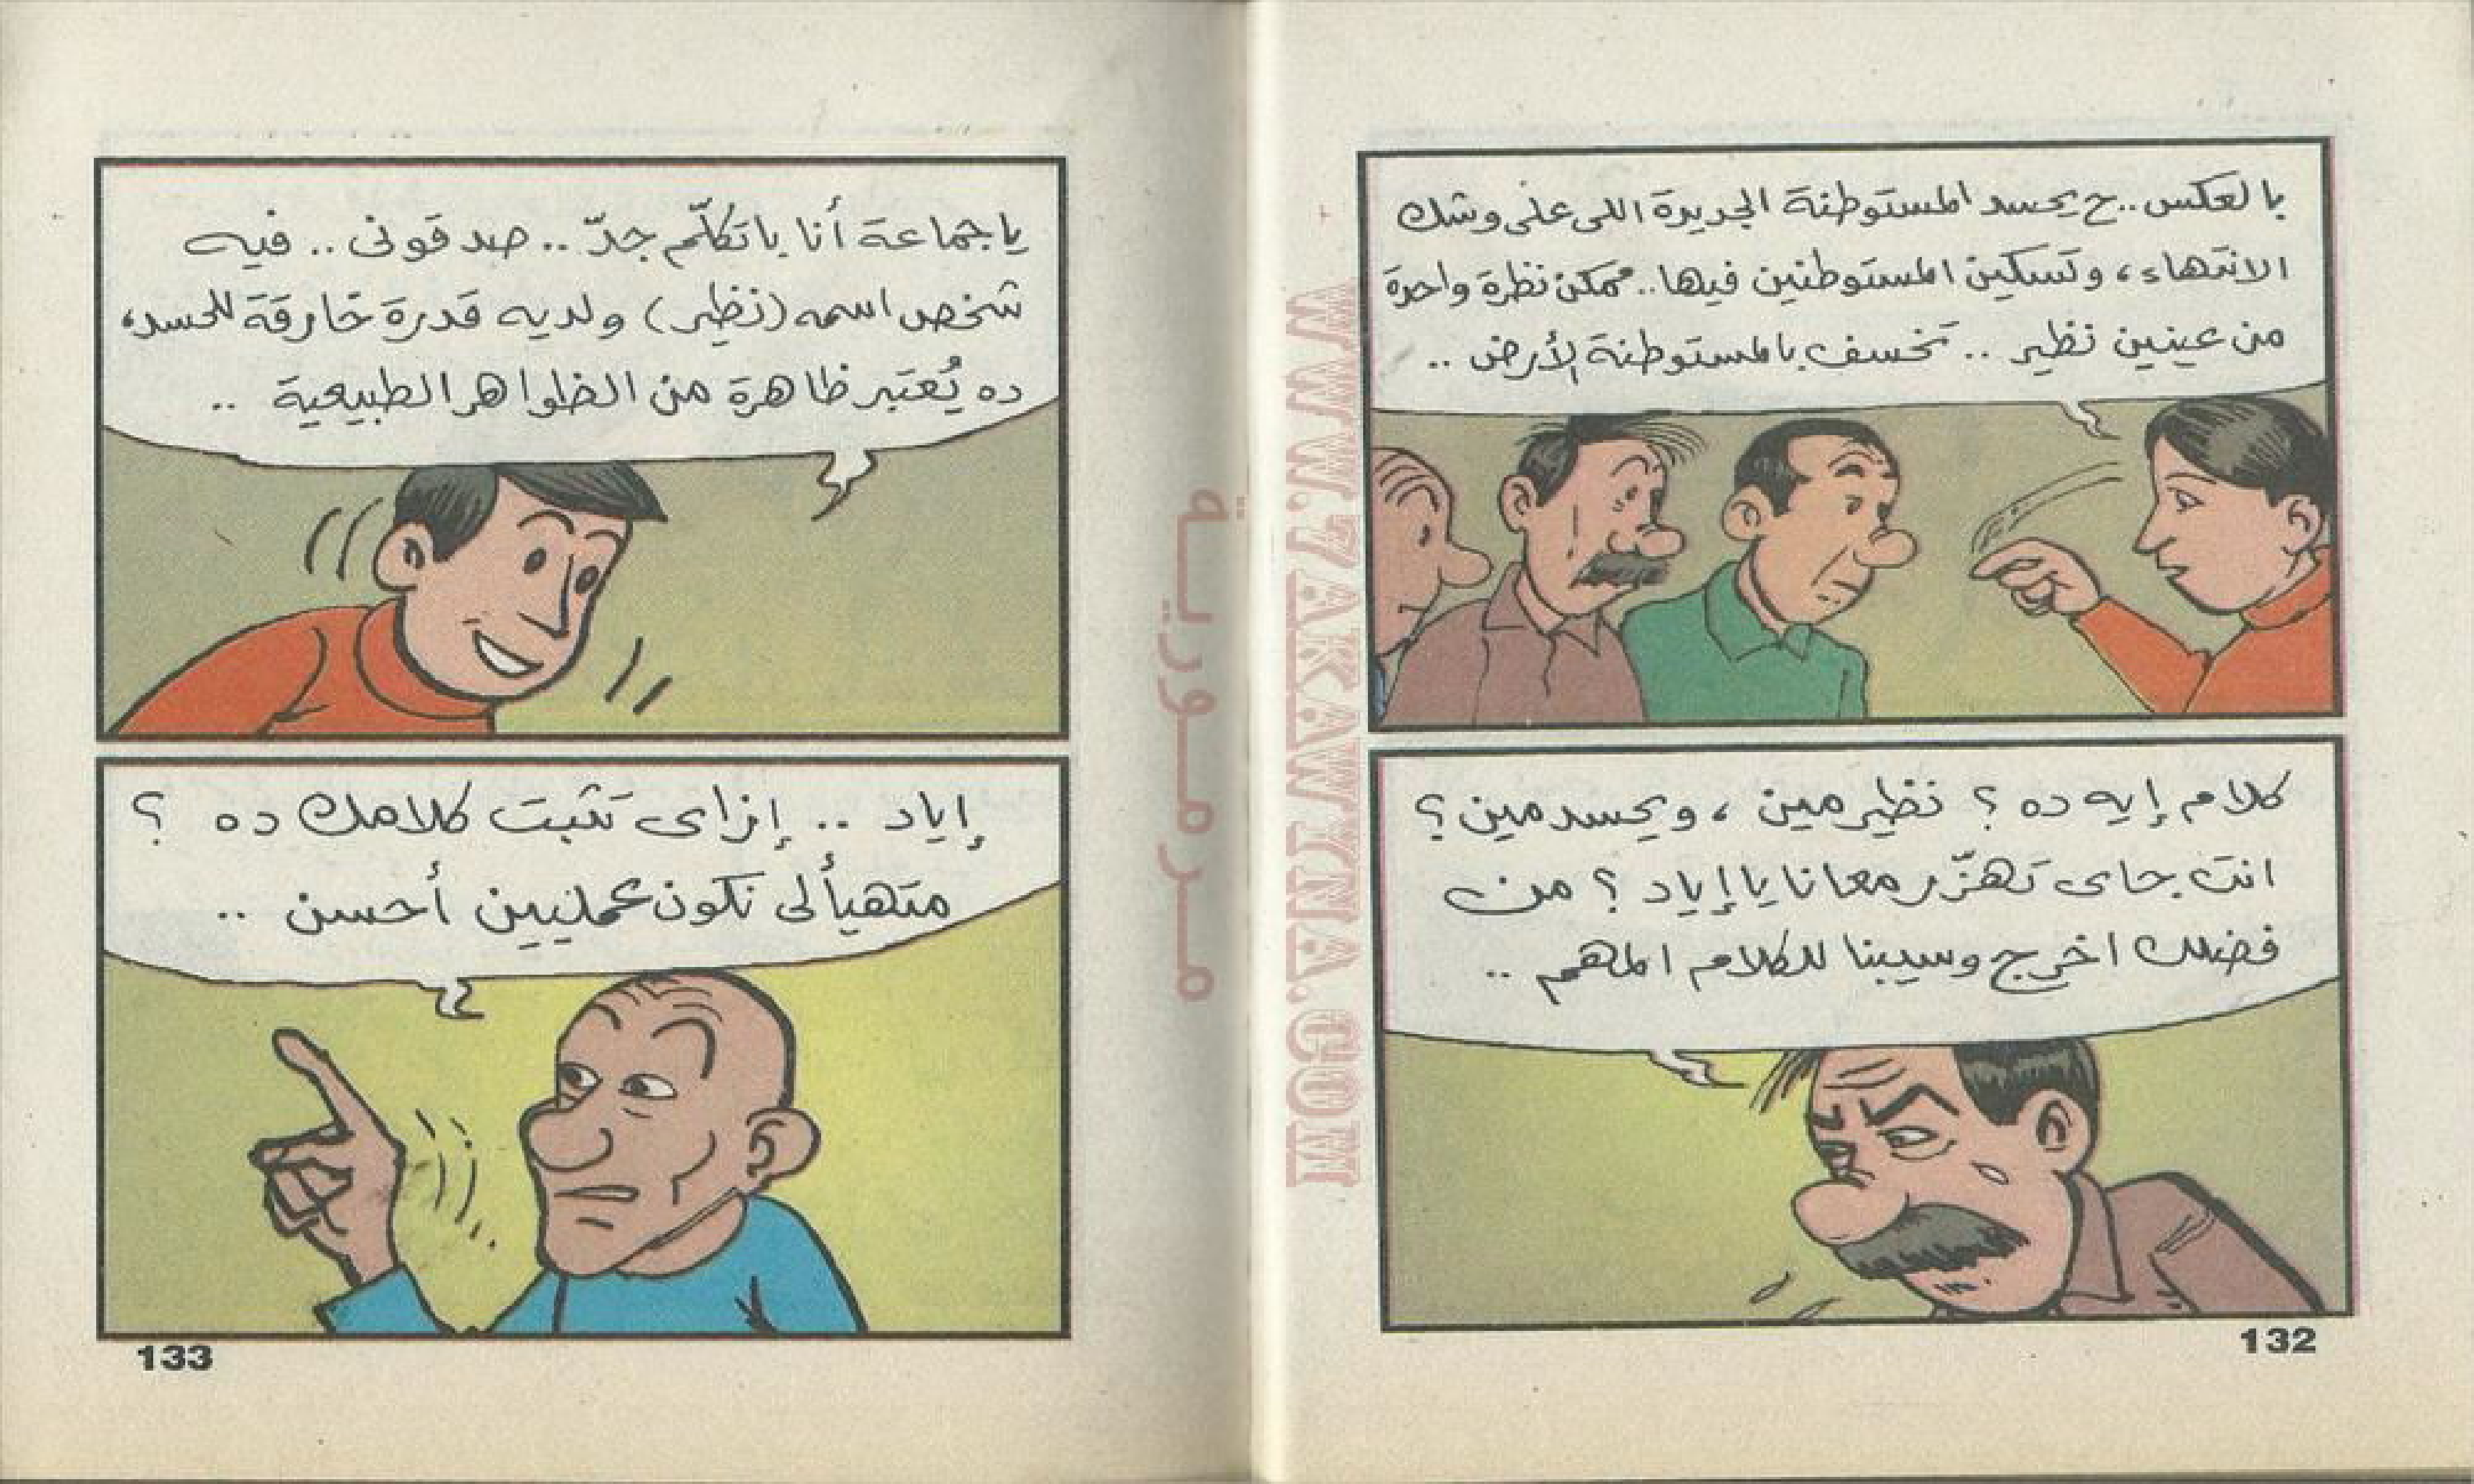 بالعكس.. ح يحسد المستوطنة الجديدة اللى على وشك
الانتهاء، وتسكين المستوطنين فيها.. ممكن نظرة واحدة
من عينين نظير .. تخسف بالمستوطنة الأرض ..
كلام إيه ده ؟ نظير مين ، ويحسد مين ؟
انت جاى تهزّر معانا يا إياد ؟ من
فضلك اخرج وسيبنا للكلام المهم ..
132
ياجماعة أنا باتكلّم جدّ .. صدقونى .. فيه
شخص اسمه (نظير) ولديه قدرة خارقة للحسد،
ده يُعتبر ظاهرة من الظواهر الطبيعية ..
إياد .. إزاى تثبت كلامك ده ؟
متهيألى نكون عمليين أحسن ..
133
مرمورية
WWW.7AKAWINA.COM